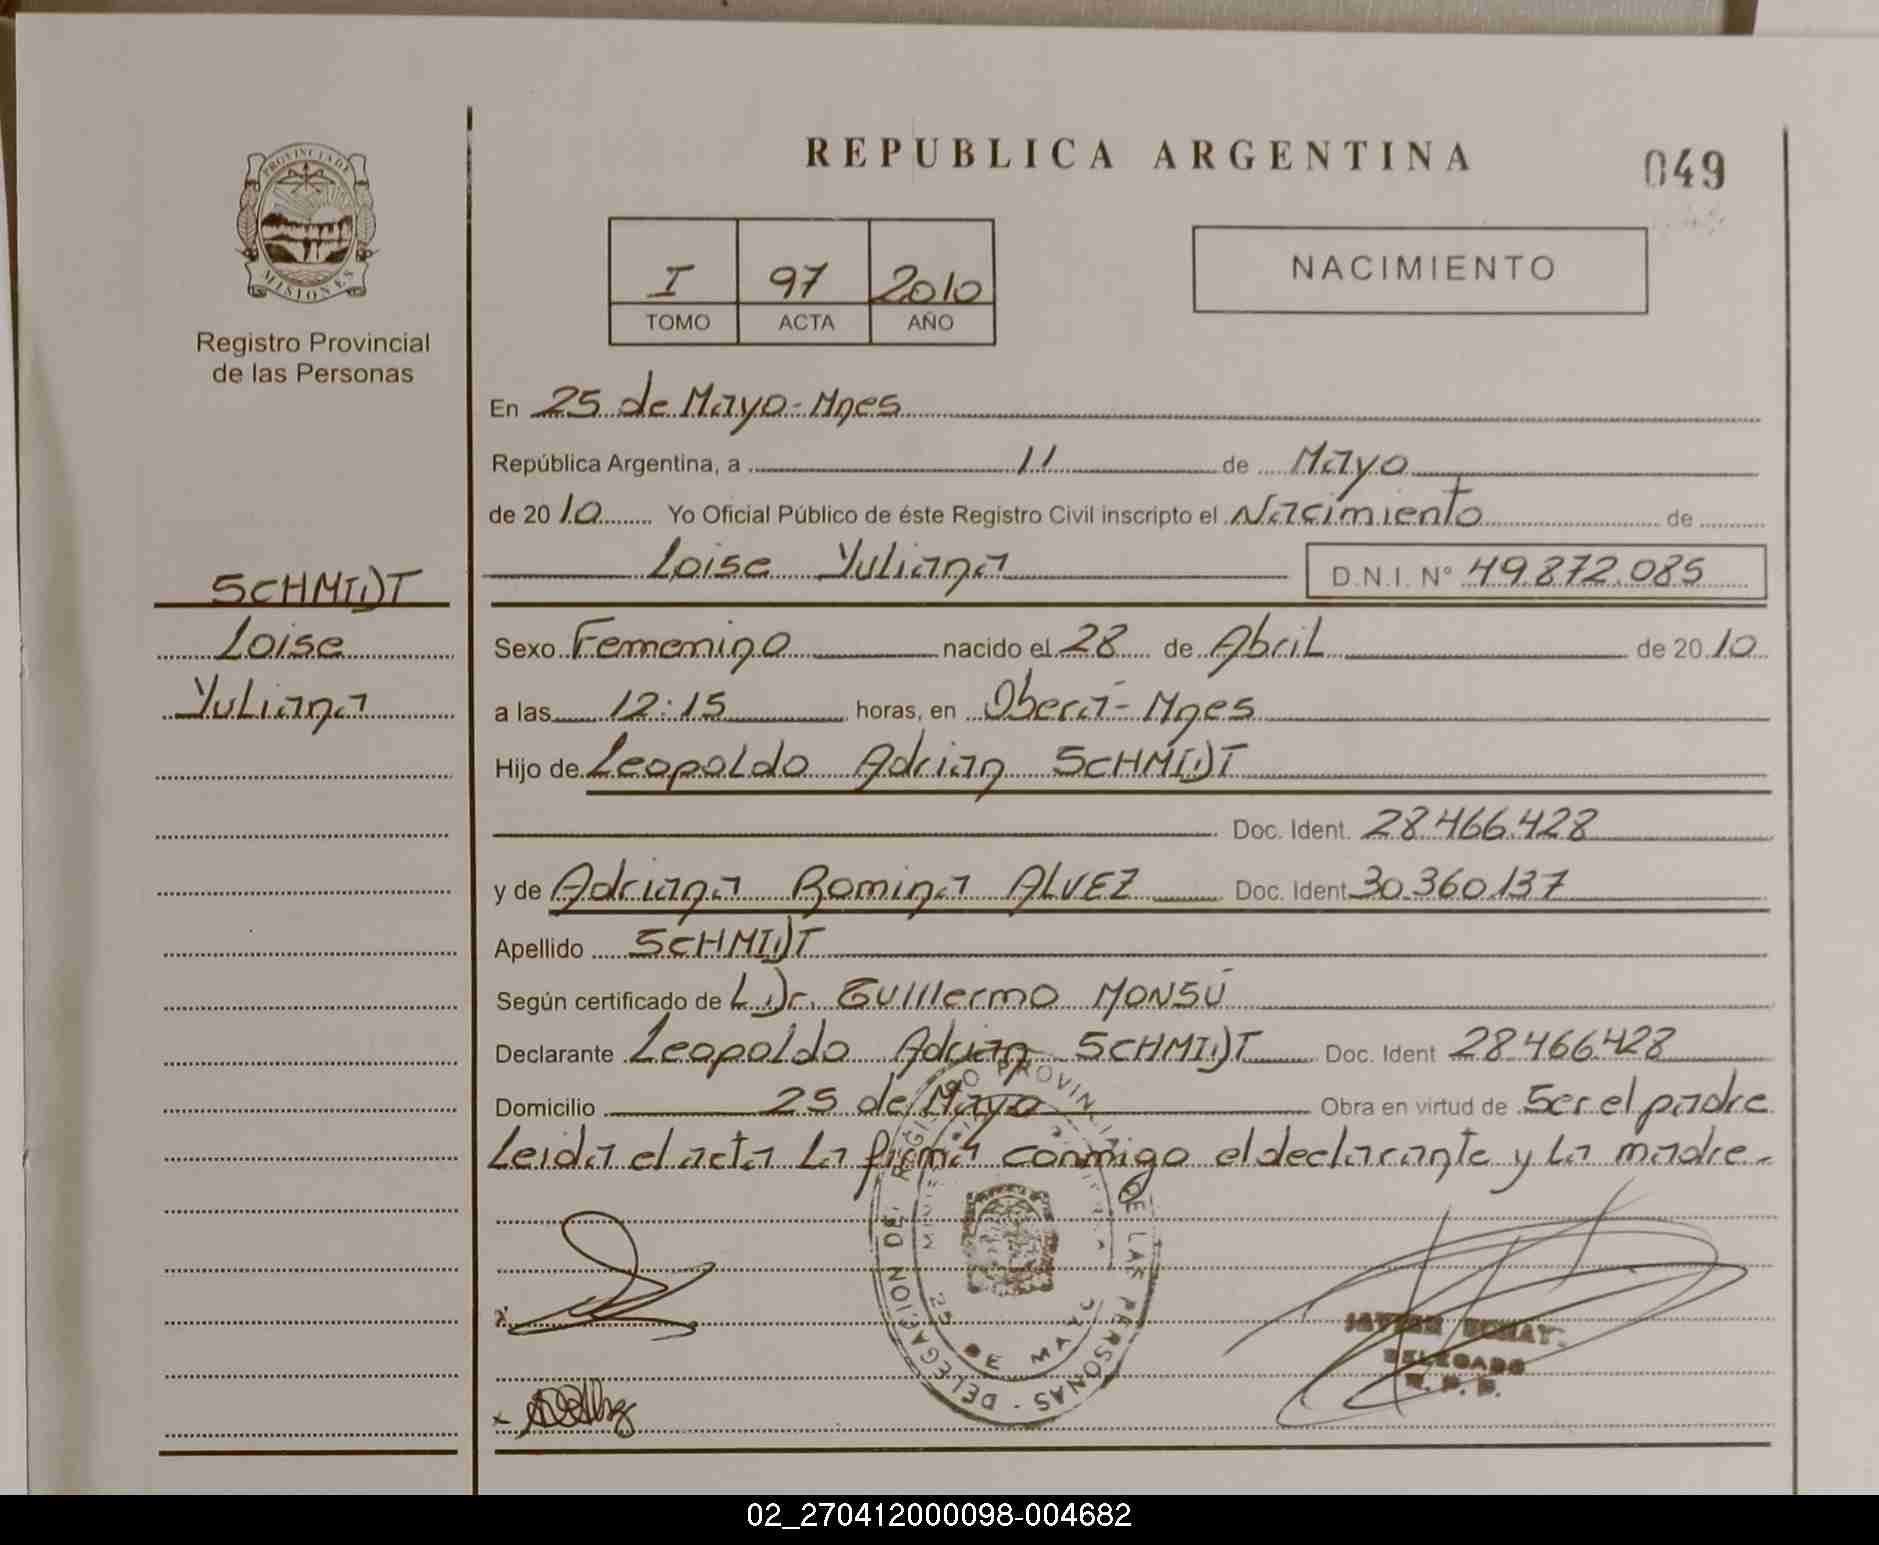 REPUBLICA ARGENTINA
049
PROVINCIA DE
MISIONES
Registro Provincial
de las Personas
I 97 2010
TOMO ACTA AÑO
NACIMIENTO
En 25 de Mayo-Mnes
República Argentina, a 11 de Mayo
de 2010 Yo Oficial Público de éste Registro Civil inscripto el Nacimiento de
Loise Yuliana D.N.I. N° 49.872.085
SCHMIDT
Loise
Yuliana
Sexo Femenino nacido el 28 de Abril de 2010
a las 12:15 horas, en Oberá-Mnes
Hijo de Leopoldo Adrian SCHMIDT
Doc. Ident. 28.466.428
y de Adriana Romina ALVEZ Doc. Ident 30.360.137
Apellido SCHMIDT
Según certificado de L Dr. Guillermo MONSÚ
Declarante Leopoldo Adrian SCHMIDT Doc. Ident 28.466.428
Domicilio 25 de Mayo Obra en virtud de Ser el padre
Leida el acta La firma conmigo el declarante y La madre.-
DELEGACION DEL REGISTRO PROVINCIAL DE LAS PERSONAS
25 DE MAYO
DELEGADO
R. P. P.
02_270412000098-004682